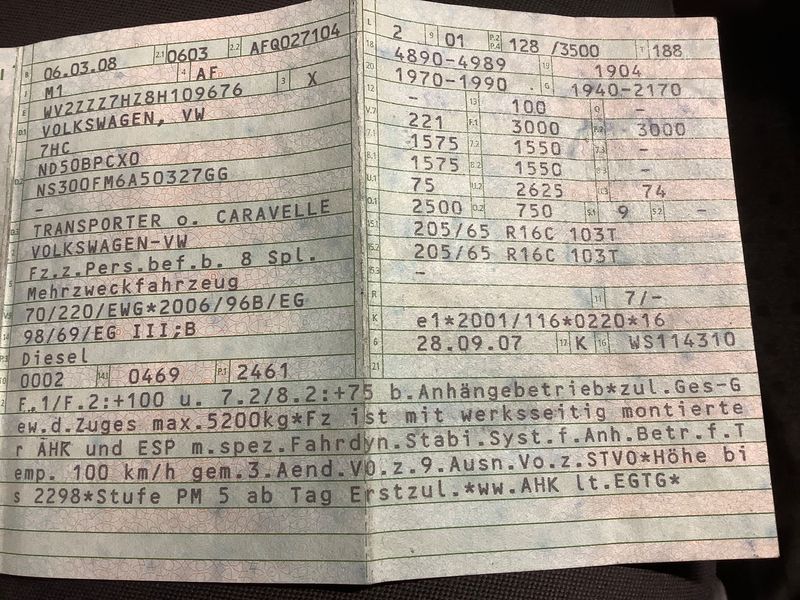 B 06.03.08 2.1 0603 2.2 AFQ027104
J M1 4 AF
E WV2ZZZ7HZ8H109676 3 X
D.1 VOLKSWAGEN, VW
7HC
D.2 ND50BPCX0
NS300FM6A50327GG
-
D.3 TRANSPORTER o. CARAVELLE
VOLKSWAGEN-VW
Fz.z.Pers.bef.b. 8 Spl.
Mehrzweckfahrzeug
V.9 70/220/EWG*2006/96B/EG
14 98/69/EG III;B
P.3 Diesel
10 0002 14.1 0469 P.1 2461
L 2 9 01 P.2 P.4 128 /3500 T 188
18 4890-4989 19 1904
20 1970-1990 G 1940-2170
12 - 13 100 Q -
V.7 221 F.1 3000 F.2 3000
7.1 1575 7.2 1550 7.3 -
8.1 1575 8.2 1550 8.3 -
U.1 75 U.2 2625 U.3 74
O.1 2500 O.2 750 S.1 9 S.2 -
15.1 205/65 R16C 103T
15.2 205/65 R16C 103T
15.3 -
R 11 7/-
K e1*2001/116*0220*16
6 28.09.07 17 K 16 WS114310
21
F.1/F.2:+100 u. 7.2/8.2:+75 b.Anhängebetrieb*zul.Ges-G
ew.d.Zuges max.5200kg*Fz ist mit werksseitig montierte
r AHK und ESP m.spez.Fahrdyn.Stabi.Syst.f.Anh.Betr.f.T
emp. 100 km/h gem.3.Aend.VO.z.9.Ausn.Vo.z.STVO*Höhe bi
s 2298*Stufe PM 5 ab Tag Erstzul.*ww.AHK lt.EGTG*